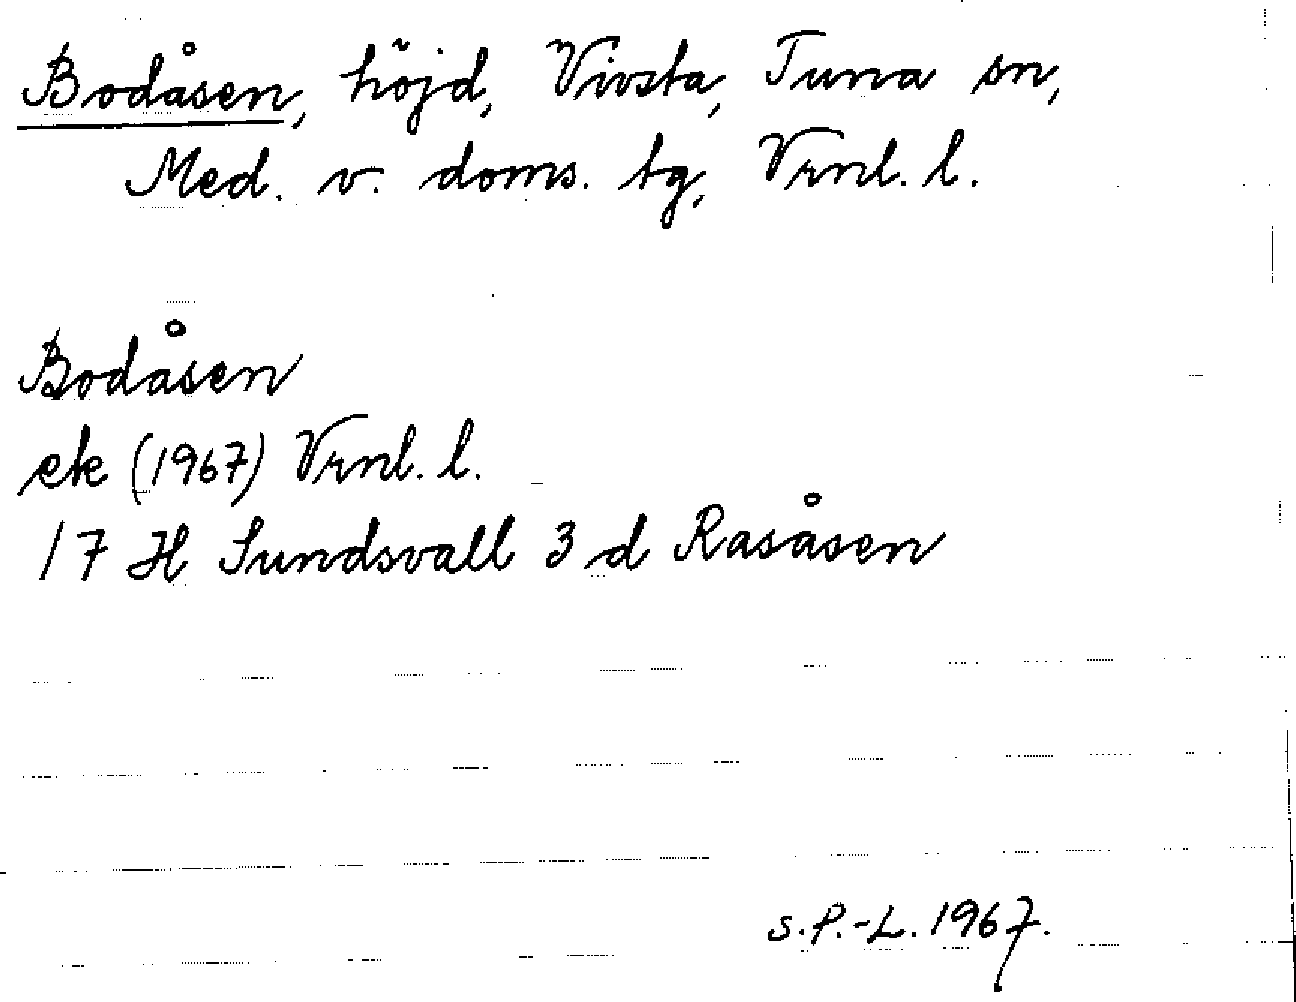 Bodåsen, höjd, Vivsta, Tuna sn,
Med. v. doms. tg, Vrnl. l.
Bodåsen
ek (1967) Vrnl. l.
17 H Sundsvall 3 d Rasåsen
S.P.-L. 1967.